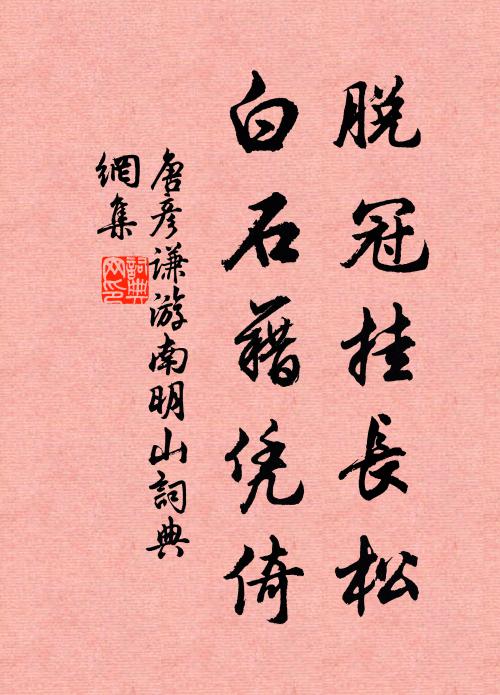 脱冠挂長松
白石藉凭倚
唐彦谦游南明山詞典
網集
詞典
网印